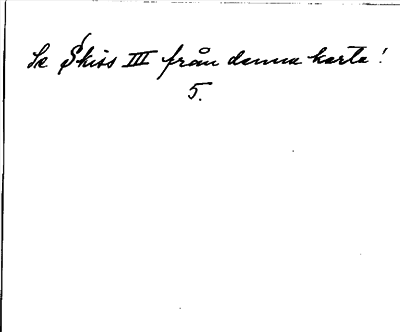 Se Skiss III från denna karta!
5.